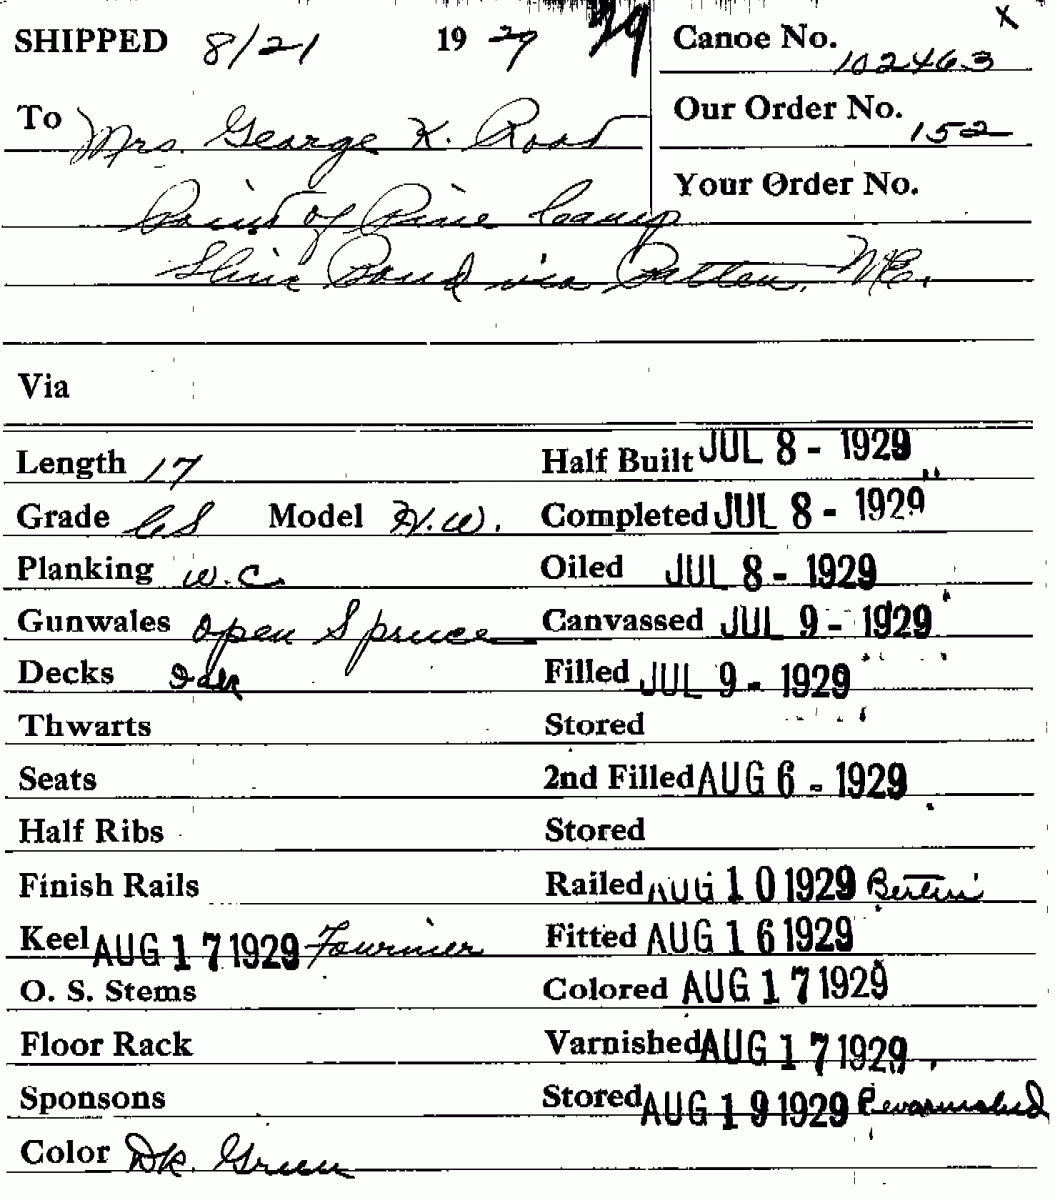 SHIPPED 8/21 19 29 29 Canoe No. 102463 x
To Mrs. George K. Root Our Order No. 152
Your Order No.
Point of Pine Camp
Shin Pond via Patten, ME.
Via
Length 17 Half Built JUL 8 - 1929
Grade CS Model H.W. Completed JUL 8 - 1929
Planking W.C. Oiled JUL 8 - 1929
Gunwales Open Spruce Canvassed JUL 9 - 1929
Decks Filled JUL 9 - 1929
Thwarts Stored
Seats 2nd Filled AUG 6 - 1929
Half Ribs Stored
Finish Rails Railed AUG 10 1929
Keel AUG 17 1929 Fournier Fitted AUG 16 1929
O. S. Stems Colored AUG 17 1929
Floor Rack Varnished AUG 17 1929
Sponsons Stored AUG 19 1929 Revarnished
Color Dk. Green